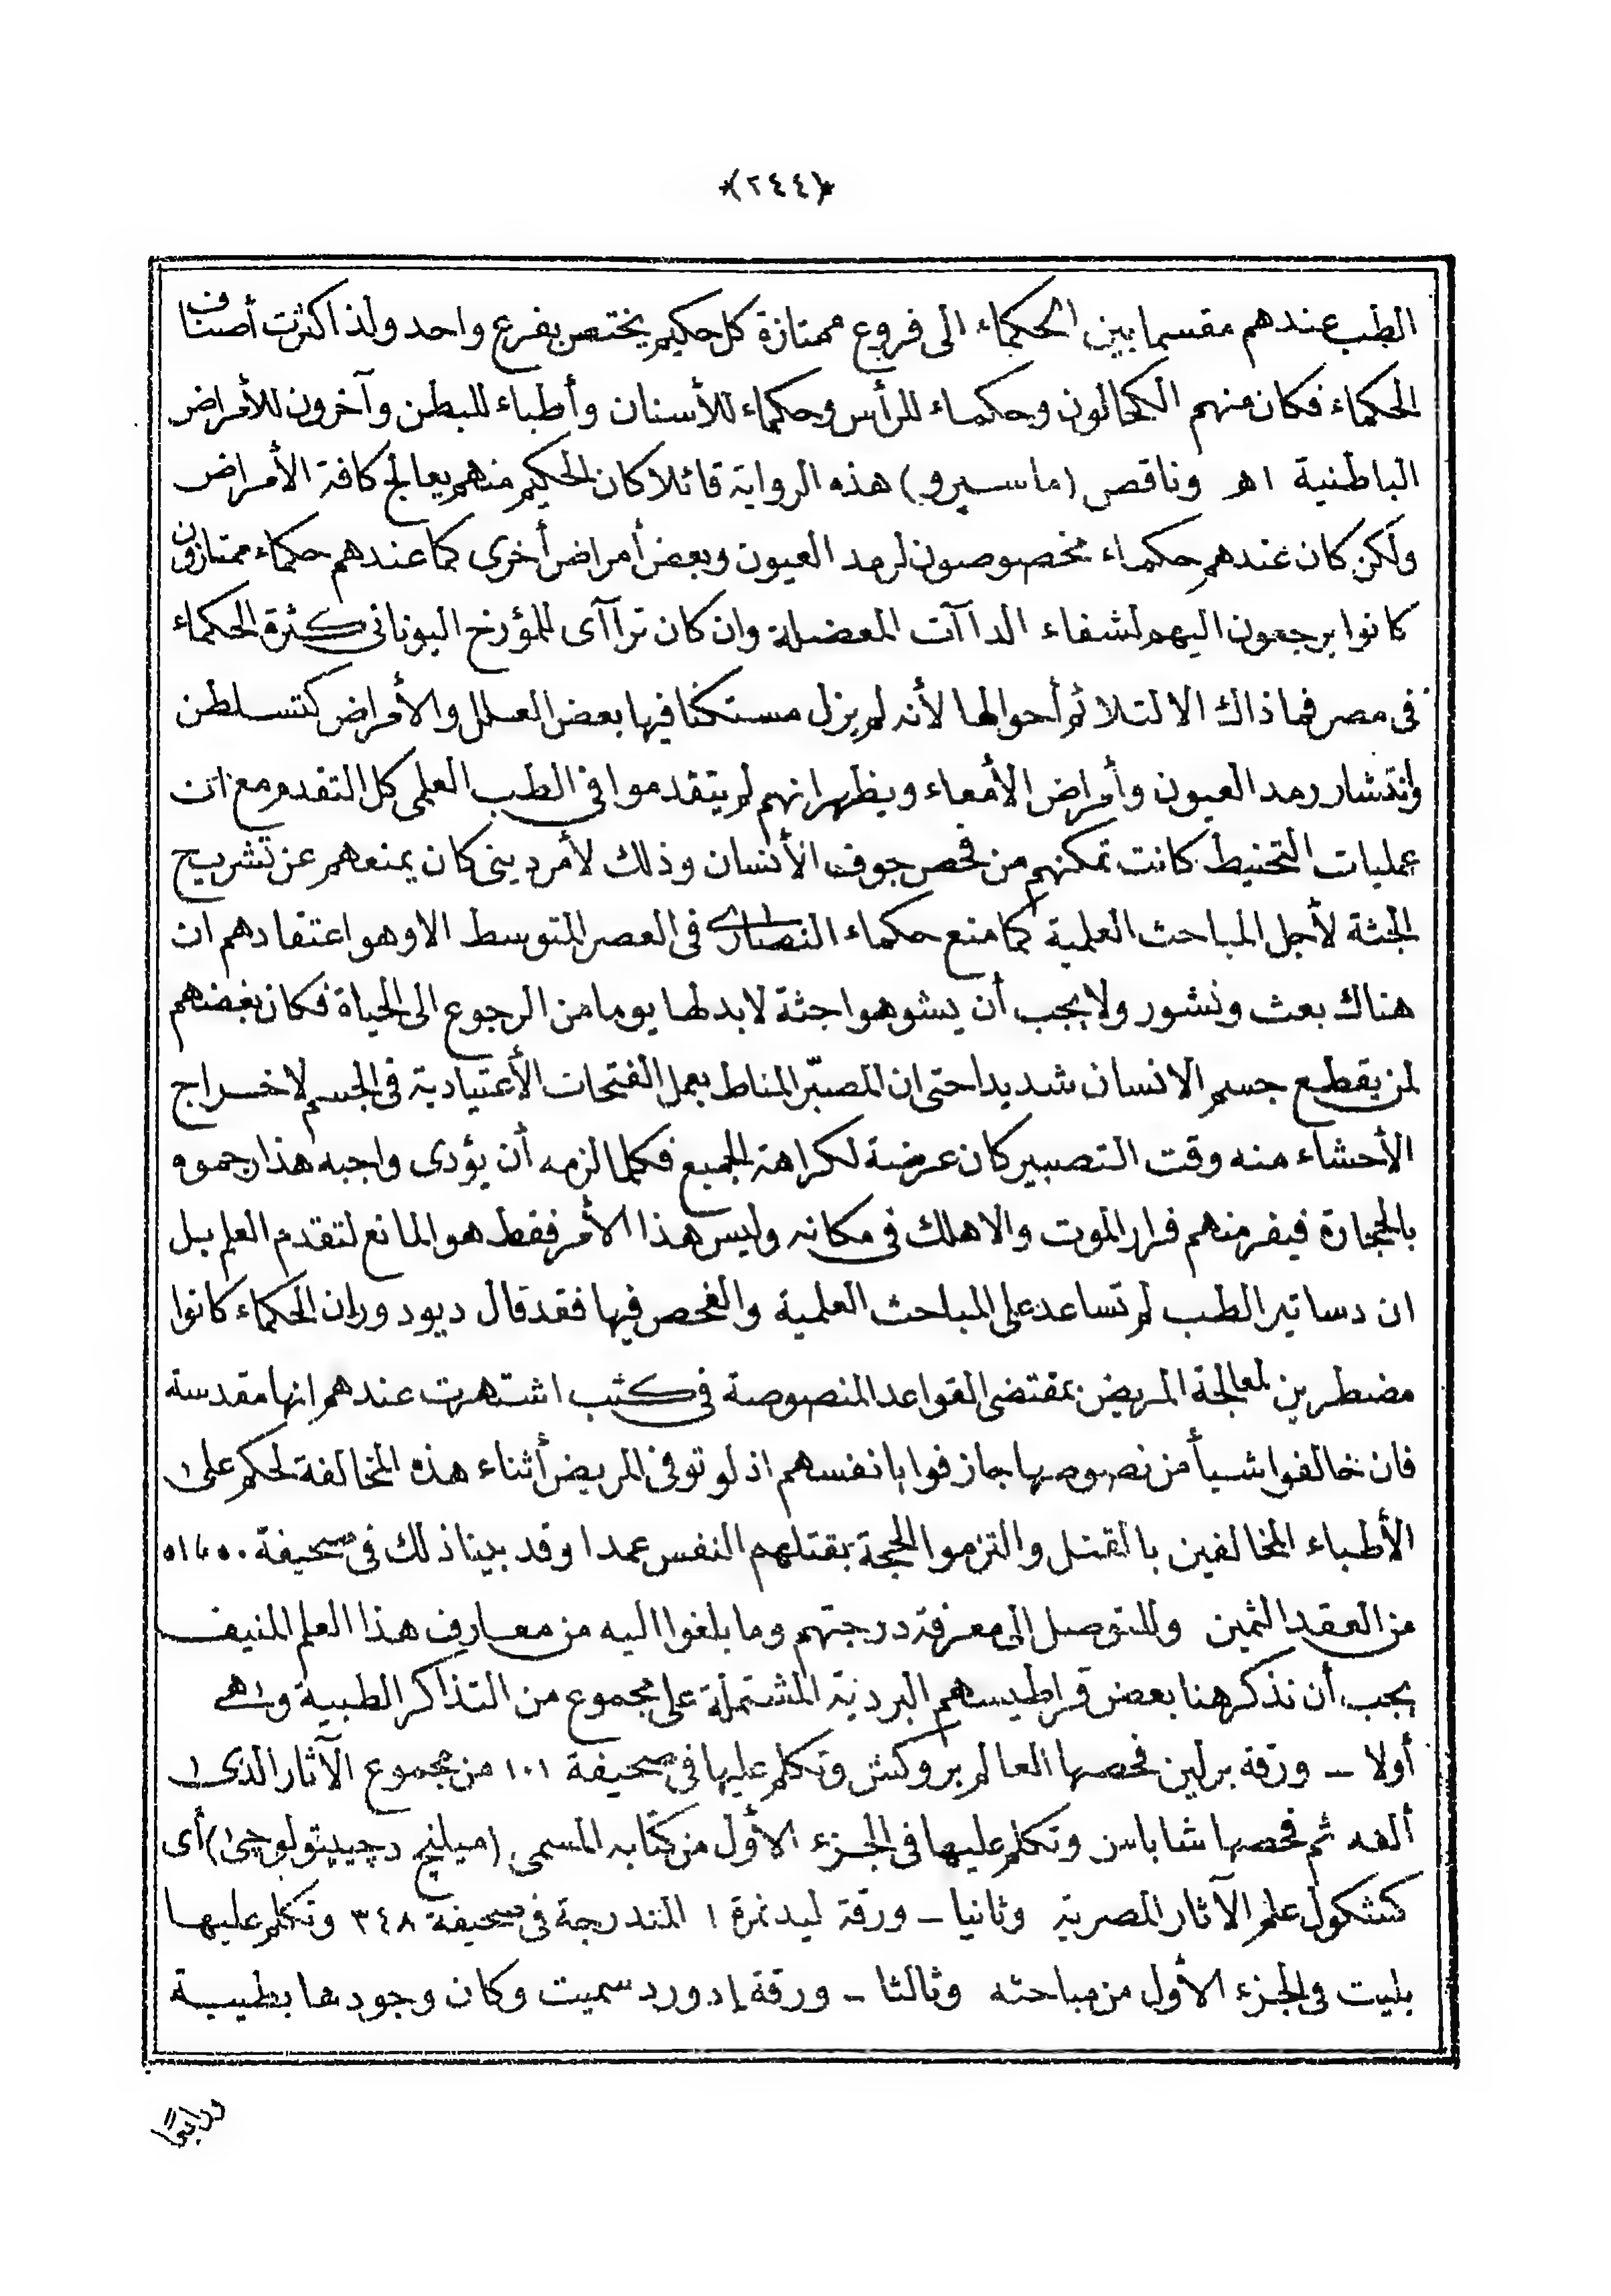 ﴿٢٤٤﴾
الطب عندهم مقسما بين الحكماء الى فروع ممتازة كل حكيم يختص بفرع واحد ولذا كثرت أصناف
الحكماء فكان منهم الكحالون وحكماء للرأس وحكماء للأسنان وأطباء للبطن وآخرون للأمراض
الباطنية اه وناقص (ماسپرو) هذه الرواية قائلا كان الحكيم منهم يعالج كافة الأمراض
ولكن كان عندهم حكماء مخصوصون لرمد العيون وبعض أمراض أخرى كما عندهم حكماء ممتازون
كانوا يرجعون اليهم لشفاء الداآت المعضلة وان كان تراآى للمؤرخ اليونانى كثرة الحكماء
فى مصر فما ذاك الا لتلائم أحوالها لأنه لم يزل مستكنا فيها بعض العلل والأمراض كتسلطن
وانتشار رمد العيون وأمراض الأمعاء ويظهر انهم لم يتقدموا فى الطب العلمى كل التقدم مع ان
عمليات التحنيط كانت تمكنهم من فحص جوف الأنسان وذلك لأمر دينى كان يمنعهم عن تشريح
الجثة لأجل المباحث العلمية كما منع حكماء النصارى فى العصر المتوسط الا وهو اعتقادهم ان
هناك بعث ونشور ولا يجب أن يشوهوا جثة لا بد لها يوما من الرجوع الى الحياة فكان بغضهم
لمن يقطع جسم الانسان شديدا حتى ان المصبّر المناط بعمل الفتحات الأعتيادية فى الجسم لاخراج
الأحشاء منه وقت التصبير كان عرضة لكراهة الجميع فكلما لزمه أن يؤدى واجبه هذا رجموه
بالحجارة فيفر منهم فرار الموت والا هلك فى مكانه وليس هذا الأمر فقط هو المانع لتقدم العلم بل
ان دساتير الطب لم تساعد على المباحث العلمية والفحص فيها فقد قال ديودور ان الحكماء كانوا
مضطرين لمعالجة المريض بمقتضى القواعد المنصوصة فى كتب اشتهرت عندهم انها مقدسة
فان خالفوا شيأ من نصوصها جازفوا بانفسهم اذ لو توفى المريض أثناء هذه المخالفة لحكم على
الأطباء المخالفين بالقتل والتزموا الحجة بقتلهم النفس عمدا وقد بينا ذلك فى صحيفة
من العقد الثمين وللتوصل الى معرفة درجتهم وما بلغوا اليه من معارف هذا العلم المنيف
يجب أن نذكر هنا بعض قراطيسهم البردية المشتملة على مجموع من التذاكر الطبية وهى
أولا ــ ورقة برلين فحصها العالم بروكش وتكلم عليها فى صحيفة ١٠١ من مجموع الآثار الذى
ألفه ثم فحصها شاباس وتكلم عليها فى الجزء الأول من كتابه المسمى (ميلنچ دچيپتولوچى) أى
كشكول علم الآثار المصرية وثانيا ــ ورقة ليد نمرة ١ المندرجة فى صحيفة ٣٤٨ وتكلم عليها
پليت فى الجزء الأول من مباحثه وثالثا ــ ورقة إدورد سميت وكان وجودها بطيبة
ورابعًا